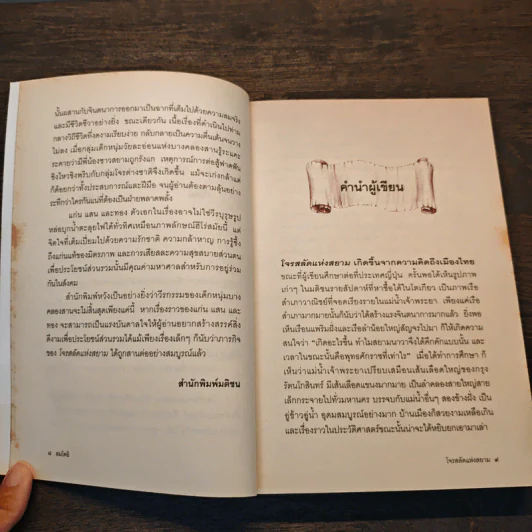 นั้นผสานกับจินตนาการออกมาเป็นฉากที่เต็มไปด้วยความสมจริง
และมีชีวิตชีวาอย่างยิ่ง ขณะเดียวกัน เนื้อเรื่องที่ดำเนินไปท่าม
กลางวิถีชีวิตที่งดงามเรียบง่าย กลับกลายเป็นความตื่นเต้นจนวาง
ไม่ลง เมื่อกลุ่มเด็กหนุ่มวัยละอ่อนแห่งบางคลองสานรู้ระแคะ
ระคายว่ามีพี่น้องชาวสยามถูกรังแก เหตุการณ์การต่อสู้ฟาดฟัน
ชิงไหวชิงพริบกับกลุ่มโจรต่างชาติจึงเกิดขึ้น แม้จะเก่งกล้าแต่
ก็ด้อยกว่าทั้งประสบการณ์และฝีมือ จนผู้อ่านต้องตามลุ้นอย่าง
ระทึกว่าใครกันแน่ที่ต้องเป็นฝ่ายพลาดพลั้ง
แก่น แสน และทอง ตัวเอกในเรื่องอาจไม่ใช่วีรบุรุษรูป
หล่อบุกน้ำตะลุยไฟได้ทั่วทิศเหมือนภาพลักษณ์ฮีโร่สมัยนี้ แต่
จิตใจที่เต็มเปี่ยมไปด้วยความรักชาติ ความกล้าหาญ การรู้ซึ้ง
ถึงแก่นแท้ของมิตรภาพ และการเสียสละความสุขสบายส่วนตน
เพื่อประโยชน์ส่วนรวมนั้นมีคุณค่ามหาศาลสำหรับการอยู่ร่วม
กันในสังคม
สำนักพิมพ์หวังเป็นอย่างยิ่งว่าวีรกรรมของเด็กหนุ่มบาง
คลองสานจะไม่สิ้นสุดเพียงแค่นี้ หากเรื่องราวของแก่น แสน และ
ทอง จะสามารถเป็นแรงบันดาลใจให้ผู้อ่านอยากสร้างสรรค์สิ่ง
ดีงามเพื่อประโยชน์ส่วนรวมได้แม้เพียงเรื่องเล็กๆ ก็นับว่าภารกิจ
ของ โจรสลัดแห่งสยาม ได้ถูกสานต่ออย่างสมบูรณ์แล้ว
สำนักพิมพ์มติชน
๘ สมโพธิ
คำนำผู้เขียน
โจรสลัดแห่งสยาม เกิดขึ้นจากความคิดถึงเมืองไทย
ขณะที่ผู้เขียนศึกษาต่อที่ประเทศญี่ปุ่น ครั้นพอได้เห็นรูปภาพ
เก่าๆ ในมติชนรายสัปดาห์ที่หาซื้อได้ในโตเกียว เป็นภาพเรือ
สำเภาวาณิชย์ที่จอดเรียงรายในแม่น้ำเจ้าพระยา เพียงแค่เรือ
สำเภามากมายนั้นก็นับว่าได้สร้างแรงจินตนาการมากแล้ว ยิ่งพอ
เห็นเรือนแพริมฝั่งและเรือลำน้อยใหญ่สัญจรไปมา ก็ให้เกิดความ
สนใจว่า "เกิดอะไรขึ้น ทำไมสยามนาวาจึงได้คึกคักแบบนั้น และ
เวลาในขณะนั้นคือพุทธศักราชที่เท่าไร" เมื่อได้ทำการศึกษา ก็
เห็นว่าแม่น้ำเจ้าพระยาเปรียบเสมือนเส้นเลือดใหญ่ของกรุง
รัตนโกสินทร์ มีเส้นเลือดแขนงมากมาย เป็นลำคลองสายใหญ่สาย
เล็กกระจายไปทั่วมหานคร บรรจบกับแม่น้ำอื่นๆ สองข้างฝั่ง เป็น
อู่ข้าวอู่น้ำ อุดมสมบูรณ์อย่างมาก บ้านเมืองก็สวยงามเหลือเกิน
และเรื่องราวในประวัติศาสตร์ขณะนั้นน่าจะได้หยิบยกเอามาเล่า
โจรสลัดแห่งสยาม ๙